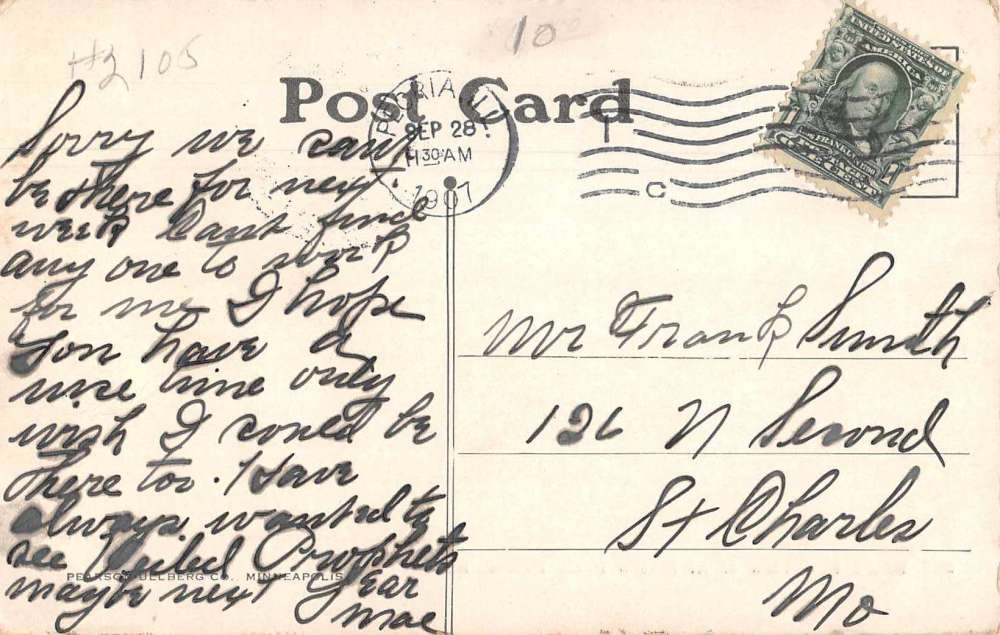 #2105
10
Post Card
PEORIA, ILL
SEP 28
1130AM
1907
C
UNITED STATES OF
AMERICA
FRANKLIN
ONE CENT
Sorry we cant
be there for next.
week Cant find
any one to work
for me I hope
you have a
nice time only
wish I could be
there too. I have
always wanted to
see Veiled Prophets
maybe next year
Mae
PEARSON-ULLBERG CO., MINNEAPOLIS
Mr Frank Smith
126 N Second
St Charles
Mo